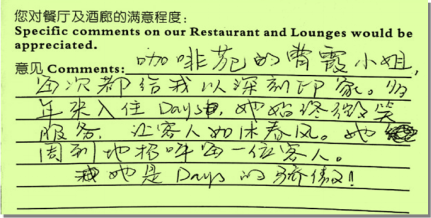 您对餐厅及酒廊的满意程度：
Specific comments on our Restaurant and Lounges would be
appreciated.
意见 Comments: 咖啡苑的曹霞小姐,
每次都给我以深刻印象。
年来入住Days, 她始终微笑
服务, 让客人如沐春风。她
周到地招呼每一位客人。
她是Days的骄傲!